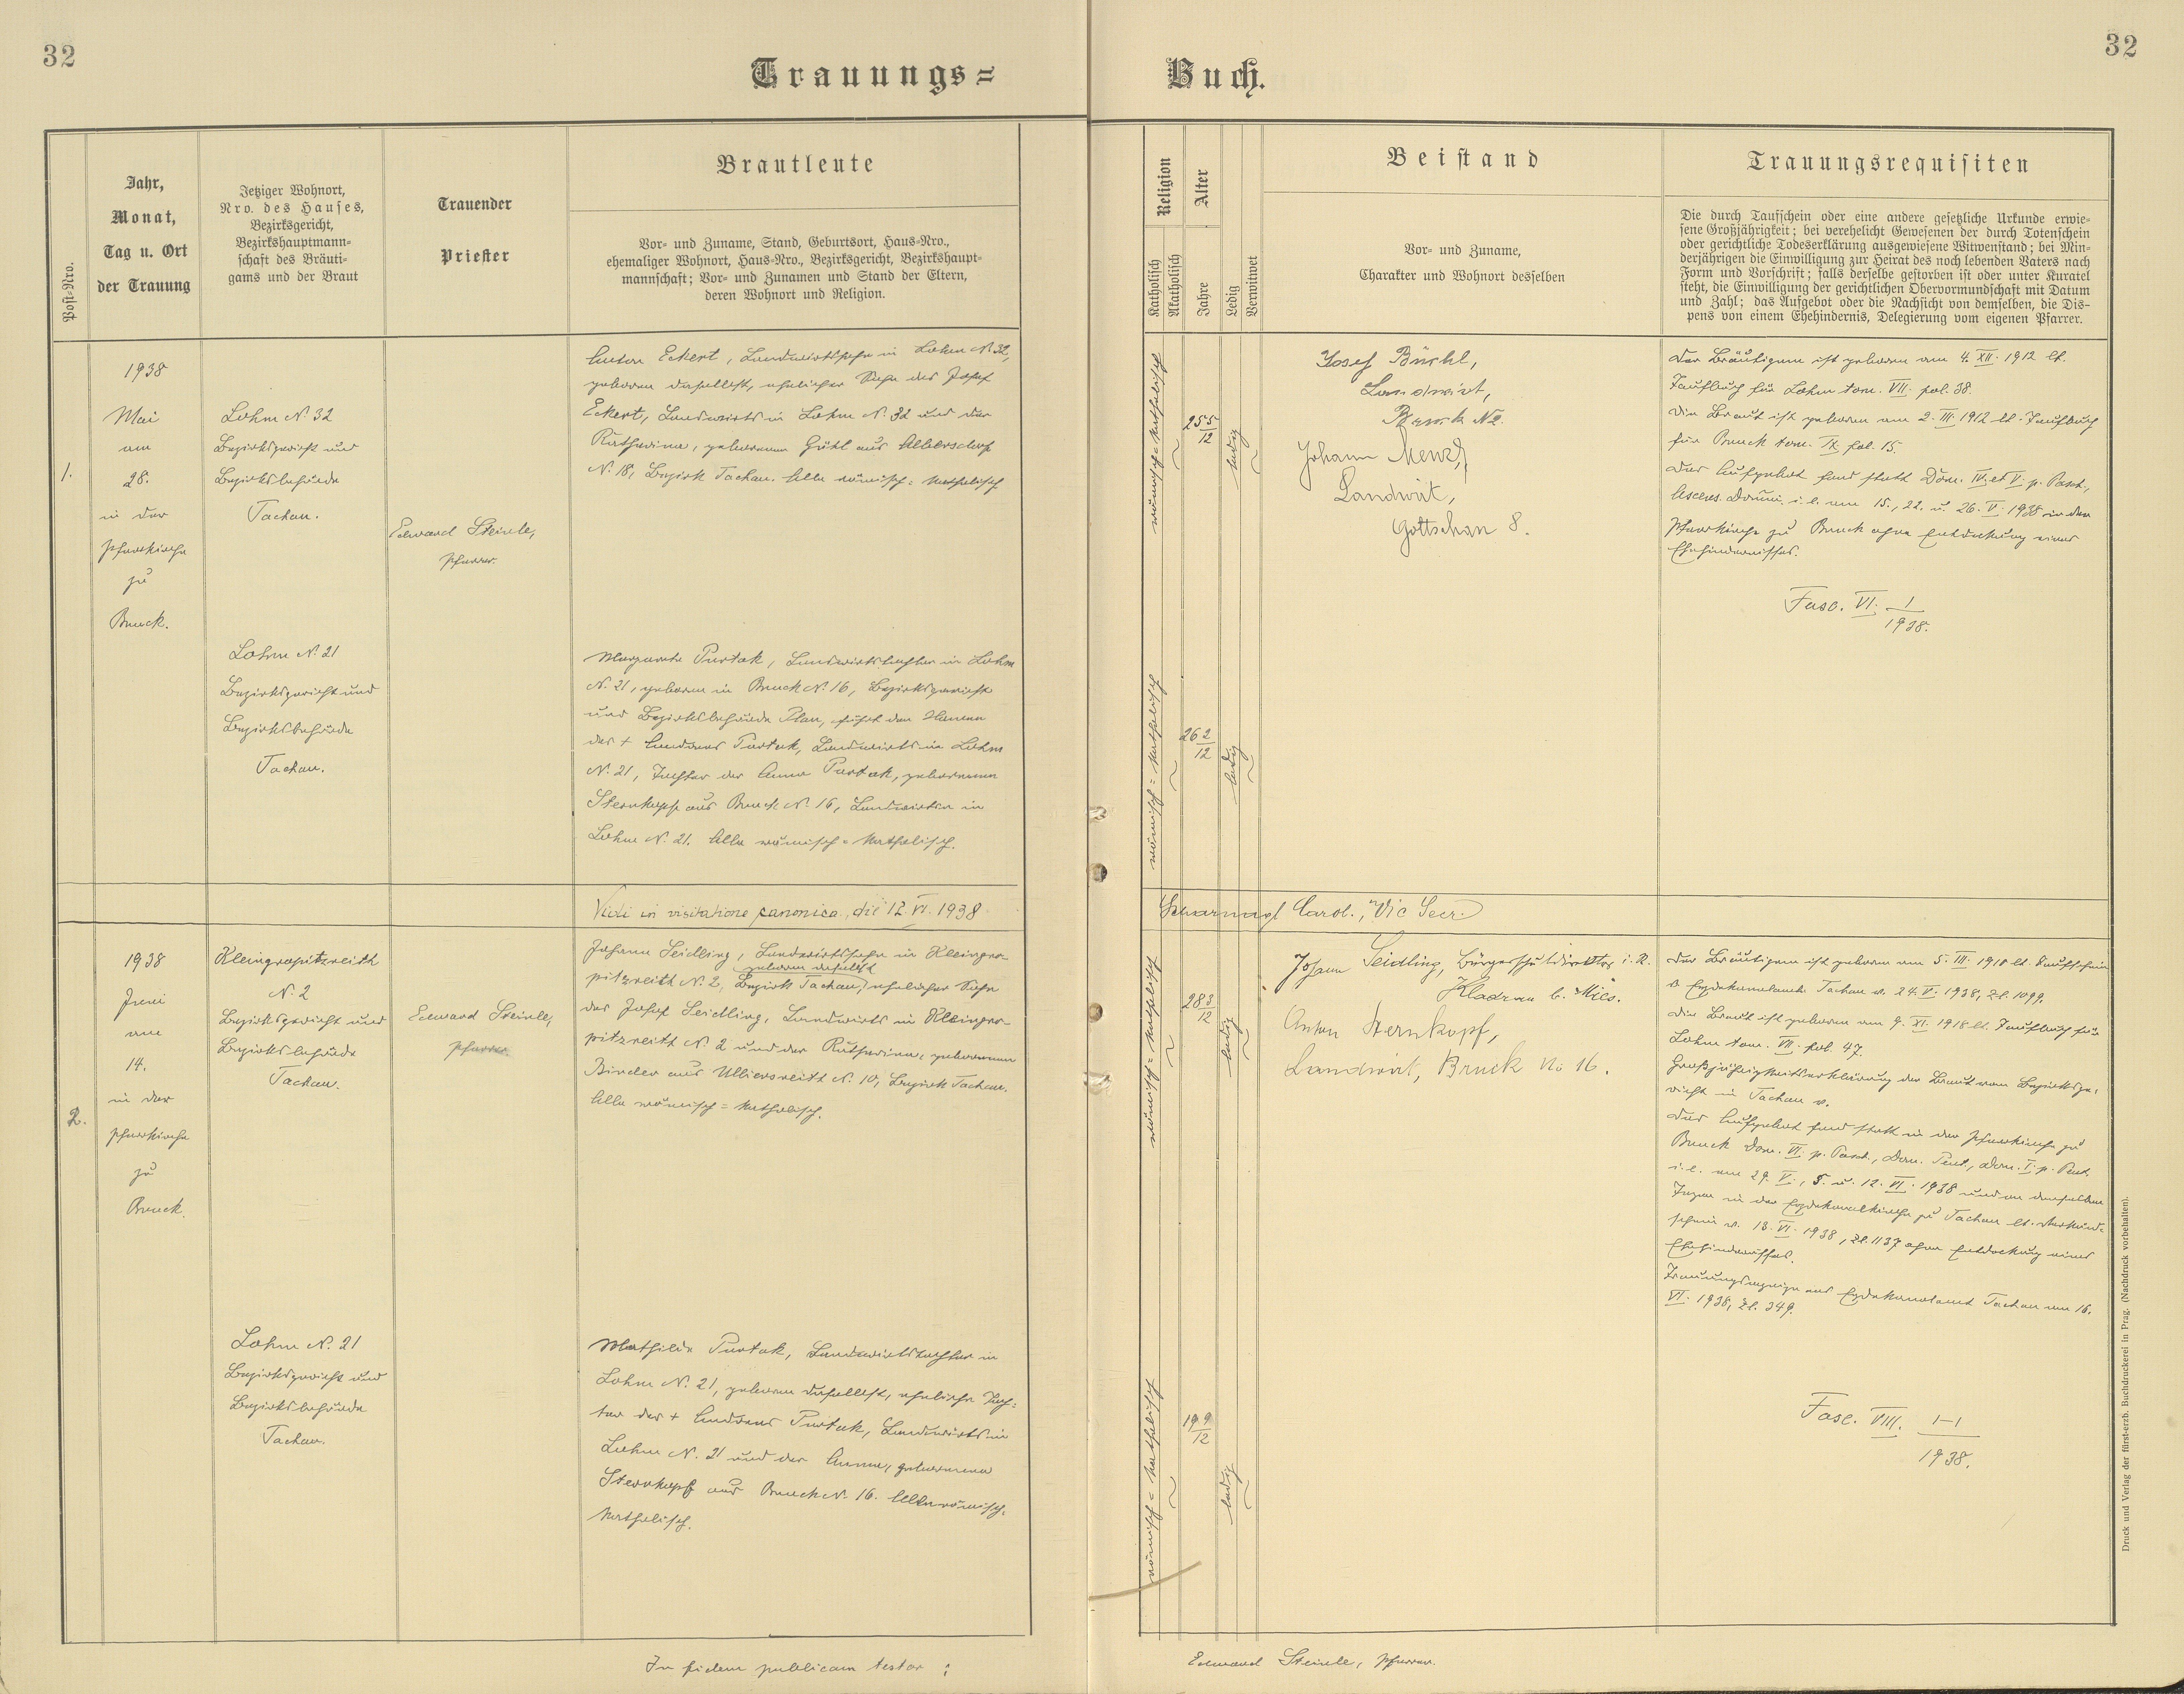 32
Trauungs=
Buch.
32
Post-Nro.
Jahr,
Monat,
Tag u. Ort
der Trauung
Jetziger Wohnort,
Nro. des Hauses,
Bezirksgericht,
Bezirkshauptmann-
schaft des Bräuti-
gams und der Braut
Trauender
Priester
Brautleute
Vor- und Zuname, Stand, Geburtsort, Haus-Nro.,
ehemaliger Wohnort, Haus-Nro., Bezirksgericht, Bezirkshaupt-
mannschaft; Vor- und Zunamen und Stand der Eltern,
deren Wohnort und Religion.
Religion
Katholisch
Akatholisch
Alter
Jahre
Ledig
Verwitwet
Beistand
Vor- und Zuname,
Charakter und Wohnort desselben
Trauungsrequisiten
Die durch Taufschein oder eine andere gesetzliche Urkunde erwie-
sene Großjährigkeit; bei verehelicht Gewesenen der durch Totenschein
oder gerichtliche Todeserklärung ausgewiesene Witwenstand; bei Min-
derjährigen die Einwilligung zur Heirat des noch lebenden Vaters nach
Form und Vorschrift; falls derselbe gestorben ist oder unter Kuratel
steht, die Einwilligung der gerichtlichen Obervormundschaft mit Datum
und Zahl; das Aufgebot oder die Nachsicht von demselben, die Dis-
pens von einem Ehehindernis, Delegierung vom eigenen Pfarrer.
1.
1938
Mai
am
28.
in der
Pfarrkirche
zu
Bruck.
Lohm N. 32
Bezirksgericht und
Bezirksbehörde
Tachau.
Edward Steinle,
Pfarrer.
Anton Eckert, Landwirtssohn in Lohm N. 32,
geboren daselbst, ehelicher Sohn des Josef
Eckert, Landwirts in Lohm N. 32 und der
Katharina, geborenen Götzl aus Albersdorf
N. 18, Bezirk Tachau. Alle römisch=katholisch.
römisch=katholisch
25 5/12
ledig
Josef Bürkl,
Landwirt,
Bruck N 2.
Johann Menzl,
Landwirt,
Gottschau 8.
Der Bräutigam ist geboren am 4. XII. 1912 lt.
Taufbuch für Lohm tom. VII. fol. 38.
Die Braut ist geboren am 2. III. 1912 lt. Taufbuch
für Bruck tom. IX. fol. 15.
Das Aufgebot fand statt Dom. IV. et V. p. Pasch.,
Ascens. Domini i. e. am 15., 22. u. 26. V. 1938 in der
Pfarrkirche zu Bruck ohne Entdeckung eines
Ehehindernisses.
Fasc. VI. 1/1938.
Lohm N. 21
Bezirksgericht und
Bezirksbehörde
Tachau.
Margareta Purtak, Landwirtstochter in Lohm
N. 21, geboren in Bruck N. 16, Bezirksgericht
und Bezirksbehörde Plan, führt den Namen
des + Andreas Purtak, Landwirts in Lohm
N. 21, Tochter der Anna Purtak, geborenen
Sternkopf aus Bruck N. 16, Landwirtin in
Lohm N. 21. Alle römisch=katholisch.
römisch=katholisch
26 2/12
ledig
Vidi in visitatione canonica, die 12. VI. 1938
Scharnagl Carol., Vic Secr.
2.
1938
Juni
am
14.
in der
Pfarrkirche
zu
Bruck.
Kleingropitzreith
N. 2
Bezirksgericht und
Bezirksbehörde
Tachau.
Edward Steinle,
Pfarrer.
Johann Seidling, Landwirtssohn in Kleingro-
geboren daselbst
pitzreith N. 2, Bezirk Tachau, ehelicher Sohn
des Josef Seidling, Landwirts in Kleingro-
pitzreith N. 2 und der Katharina, geborenen
Binder aus Ulliersreith N. 10, Bezirk Tachau.
Alle römisch=katholisch.
römisch=katholisch
28 3/12
ledig
Johann Seidling, Bürgerschuldirektor i. R.
Kladrau b. Mies.
Anton Sternkopf,
Landwirt, Bruck No 16.
Der Bräutigam ist geboren am 5. III. 1910 lt. Taufschein
d. Erzdekanalamts Tachau v. 24. V. 1938, Zl. 1099.
Die Braut ist geboren am 9. XI. 1918 lt. Taufbuch für
Lohm tom. VII. fol. 47.
Großjährigkeitserklärung der Braut vom Bezirksge-
richt in Tachau v.
Das Aufgebot fand statt in der Pfarrkirche zu
Bruck Dom. VI. p. Pasch., Dom. Pent., Dom. I. p. Pent.
i. e. am 29. V., 5. u. 12. VI. 1938 und an denselben
Tagen in der Erzdekanalkirche zu Tachau lt. Verkünd-
schein v. 13. VI. 1938, Zl. 1137 ohne Entdeckung eines
Ehehindernisses.
Trauungsanzeige ans Erzdekanalamt Tachau am 16.
VI. 1938, Zl. 349.
Fasc. VIII. 1-1/1938.
Lohm N. 21
Bezirksgericht und
Bezirksbehörde
Tachau.
Mathilde Purtak, Landwirtstochter in
Lohm N. 21, geboren daselbst, eheliche Toch=
ter des + Andreas Purtak, Landwirts in
Lohm N. 21 und der Anna, geborenen
Sternkopf aus Bruck N. 16. Alle römisch=
katholisch.
römisch=katholisch
19 9/12
ledig
In fidem publicam testor:
Edward Steinle, Pfarrer.
Druck und Verlag der fürst-erzb. Buchdruckerei in Prag. (Nachdruck vorbehalten).